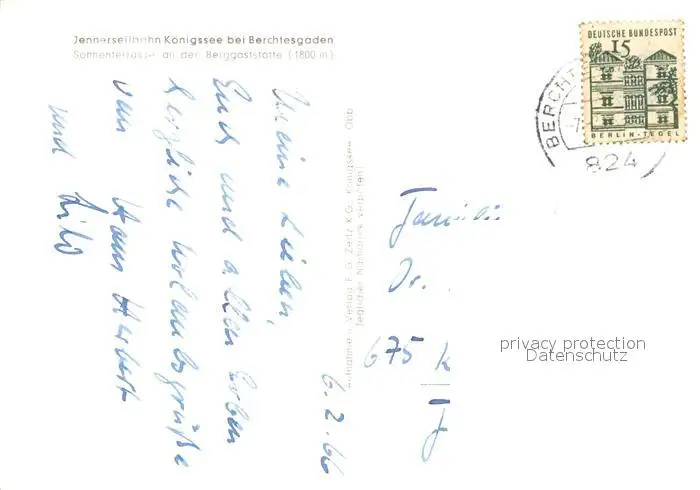 Jennerseilbahn Königssee bei Berchtesgaden
Sonnenterrasse an der Berggaststätte (1800 m)
6.2.66
Meine Lieben,
Euch und allen
herzliche Urlaubsgrüße
von Hans Herbert
und Lilo
Aufnahme u. Verlag F. G. Zeitz K.G., Königssee Obb
(Jeglicher Nachdruck verboten)
DEUTSCHE BUNDESPOST
15
BERLIN-TEGEL
BERCHT
824
Familie
Dr.
675 K
privacy protection
Datenschutz